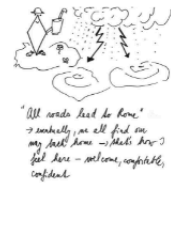 "All roads lead to Rome"
→ eventually, we all find our
way back home → that's how I
feel here – welcome, comfortable,
confident